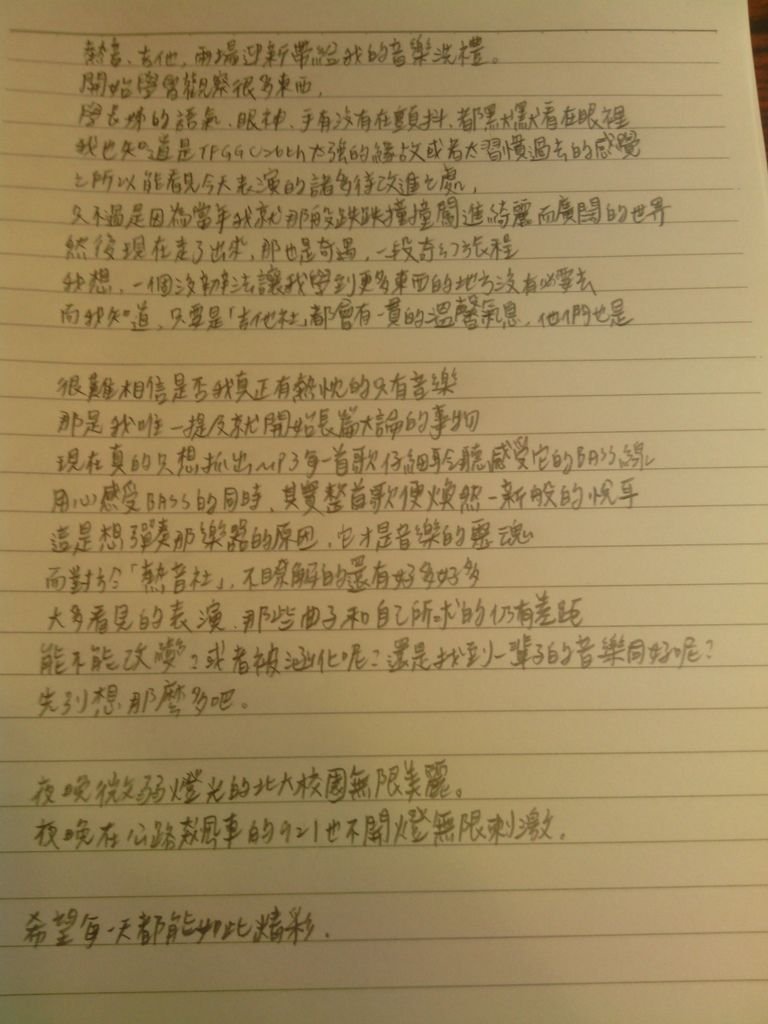 熱音、吉他，兩場迎新帶給我的音樂洗禮。
開始學會觀察很多東西，
學長姊的語氣、眼神、手有沒有在顫抖、都默默看在眼裡
我也知道是TFGGC26th太強的緣故或者太習慣過去的感覺
之所以能看見今天表演的諸多待改進之處，
只不過是因為當年我就那般跌跌撞撞闖進綺麗而廣闊的世界
然後現在走了出來，那也是奇遇，一段奇幻旅程
我想，一個沒辦法讓我學到更多東西的地方沒有必要去
而我知道，只要是「吉他社」都會有一貫的溫馨氣息，他們也是
很難相信是否我真正有熱忱的只有音樂
那是我唯一提及就開始長篇大論的事物
現在真的只想抓出MP3每一首歌仔細聆聽感受它的BASS線
用心感受BASS的同時，其實整首歌便煥然一新般的悅耳
這是想彈奏那樂器的原因，它才是音樂的靈魂
而對於「熱音社」，不瞭解的還有好多好多
大多看見的表演，那些曲子和自己所求的仍有差距
能不能改變？或者被涵化呢？還是找到一輩子的音樂同好呢？
先別想那麼多吧。
夜晚微弱燈光的北大校園無限美麗。
夜晚在公路飆車的921也不開燈無限刺激。
希望每一天都能如此精彩．